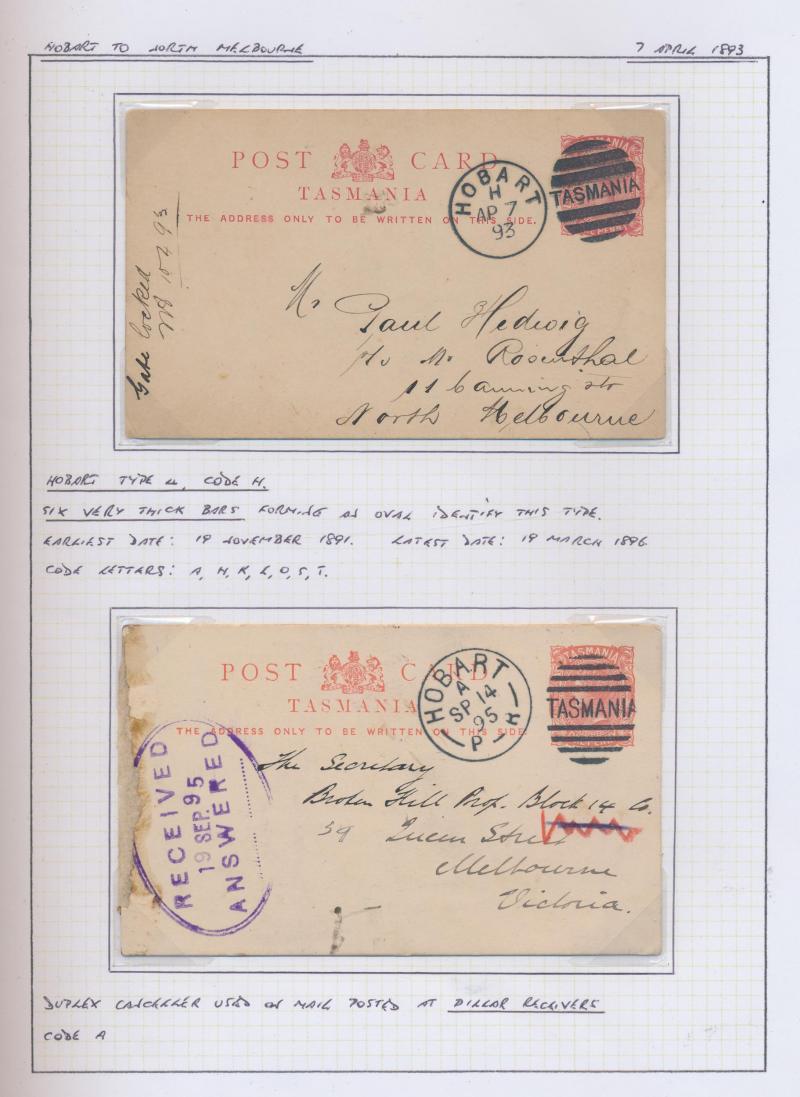 HOBART TO NORTH MELBOURNE
7 APRIL 1893
POST CARD
TASMANIA
THE ADDRESS ONLY TO BE WRITTEN ON THIS SIDE.
HOBART
H
AP 7
93
TASMANIA
TASMANIA
PENNY
Gate locked
10 4 93
Mr
Paul Hedwig
Mr Rosenthal
11 Canning str
North Melbourne
HOBART TYPE 4, CODE H.
SIX VERY THICK BARS FORMING AN OVAL IDENTIFY THIS TYPE.
EARLIEST DATE: 19 NOVEMBER 1891. LATEST DATE: 19 MARCH 1896
CODE LETTERS: A, H, K, L, O, S, T.
POST CARD
TASMANIA
THE ADDRESS ONLY TO BE WRITTEN ON THIS SIDE.
HOBART
A
SP 14
95
P
TASMANIA
TASMANIA
RECEIVED
19 SEP. 95
ANSWERED
The Secretary
Broken Hill Prop. Block 14 Co.
39 Queen Street
Melbourne
Victoria.
DUPLEX CANCELLER USED ON MAIL POSTED AT PILLAR RECEIVERS
CODE A